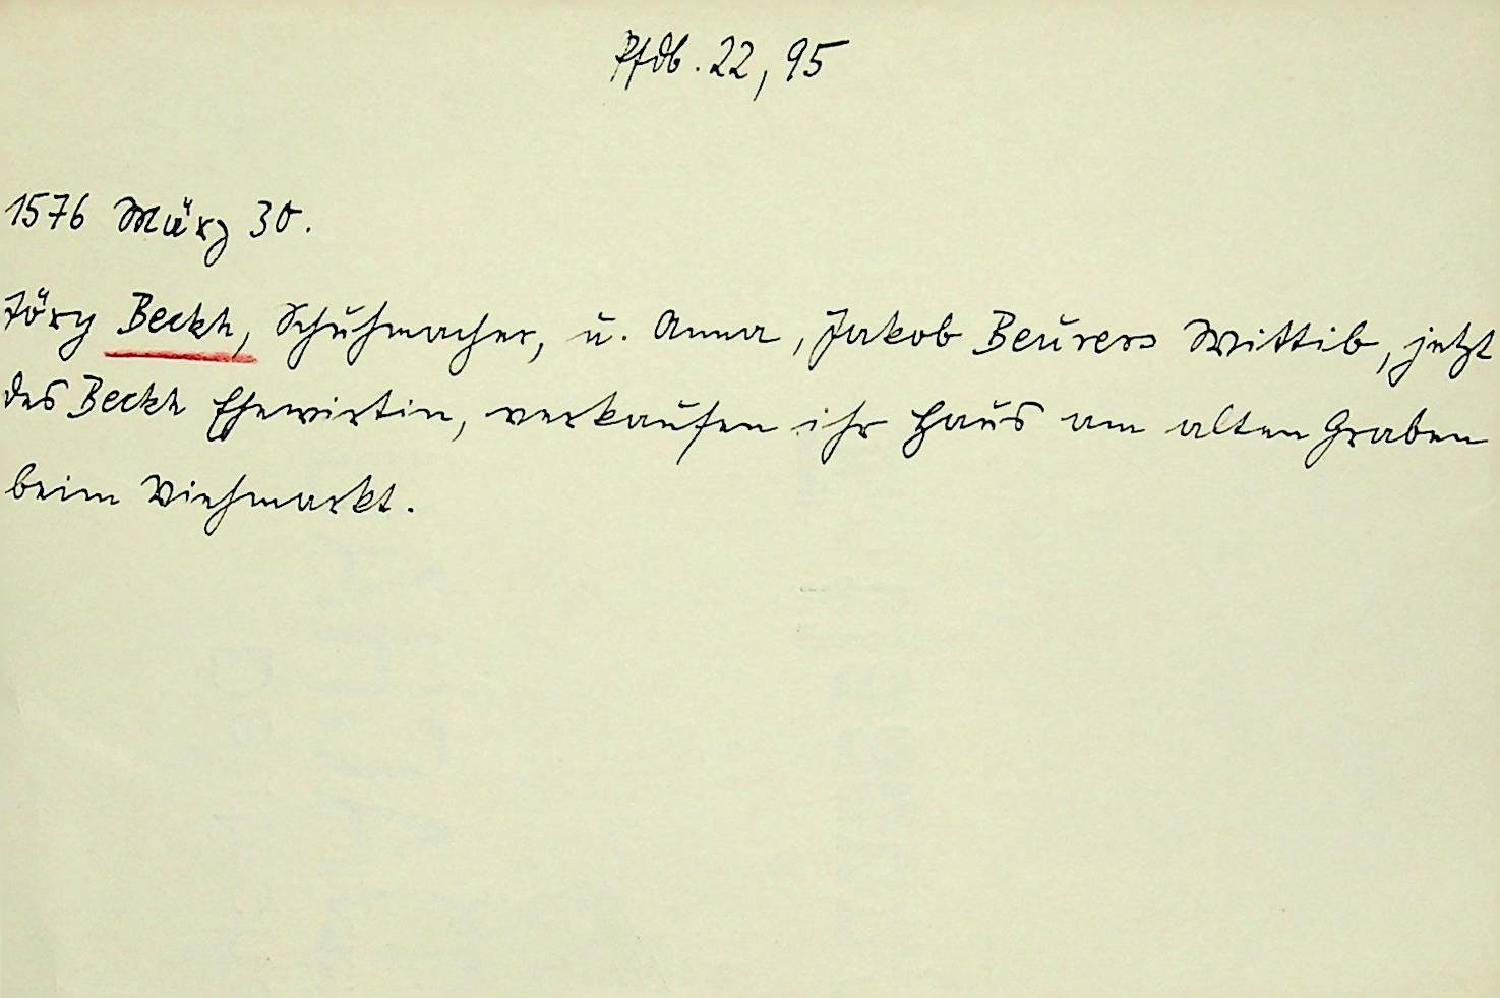 Pfdb. 22, 95
1576 März 30.
Jörg Beckh, Schuhmacher, u. Anna, Jakob Beurers Wittib, jetzt
des Beckh Ehewirtin, verkaufen ihr Haus am alten Graben
beim Viehmarkt.